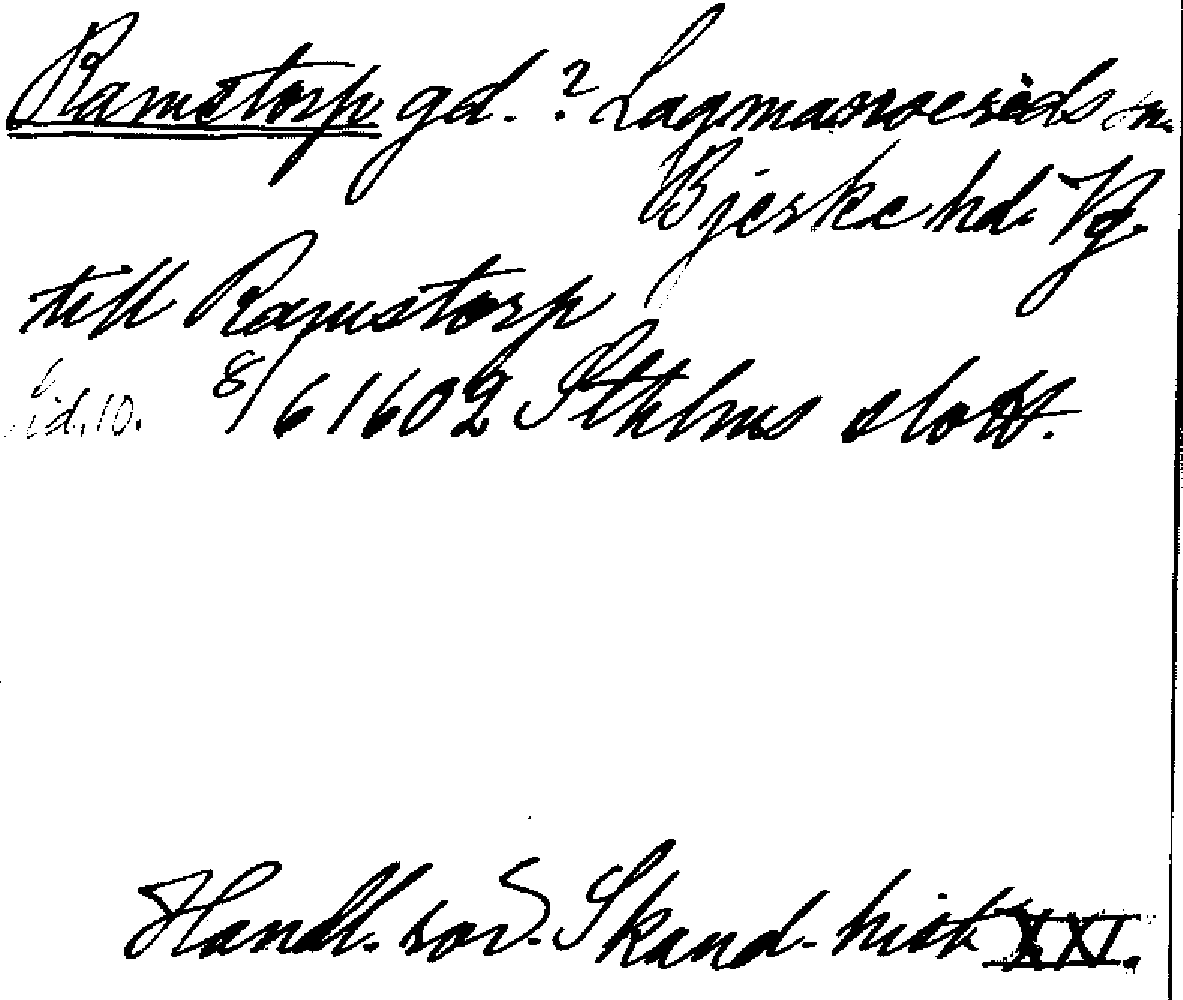 Ramstorp gd. ? Lagmansereds sn.
Bjerke hd. Vg.
till Ramstorp
sid. 10. 8/6 1602 Sthlms slott.
Handl. rör. Skand. hist XXI.